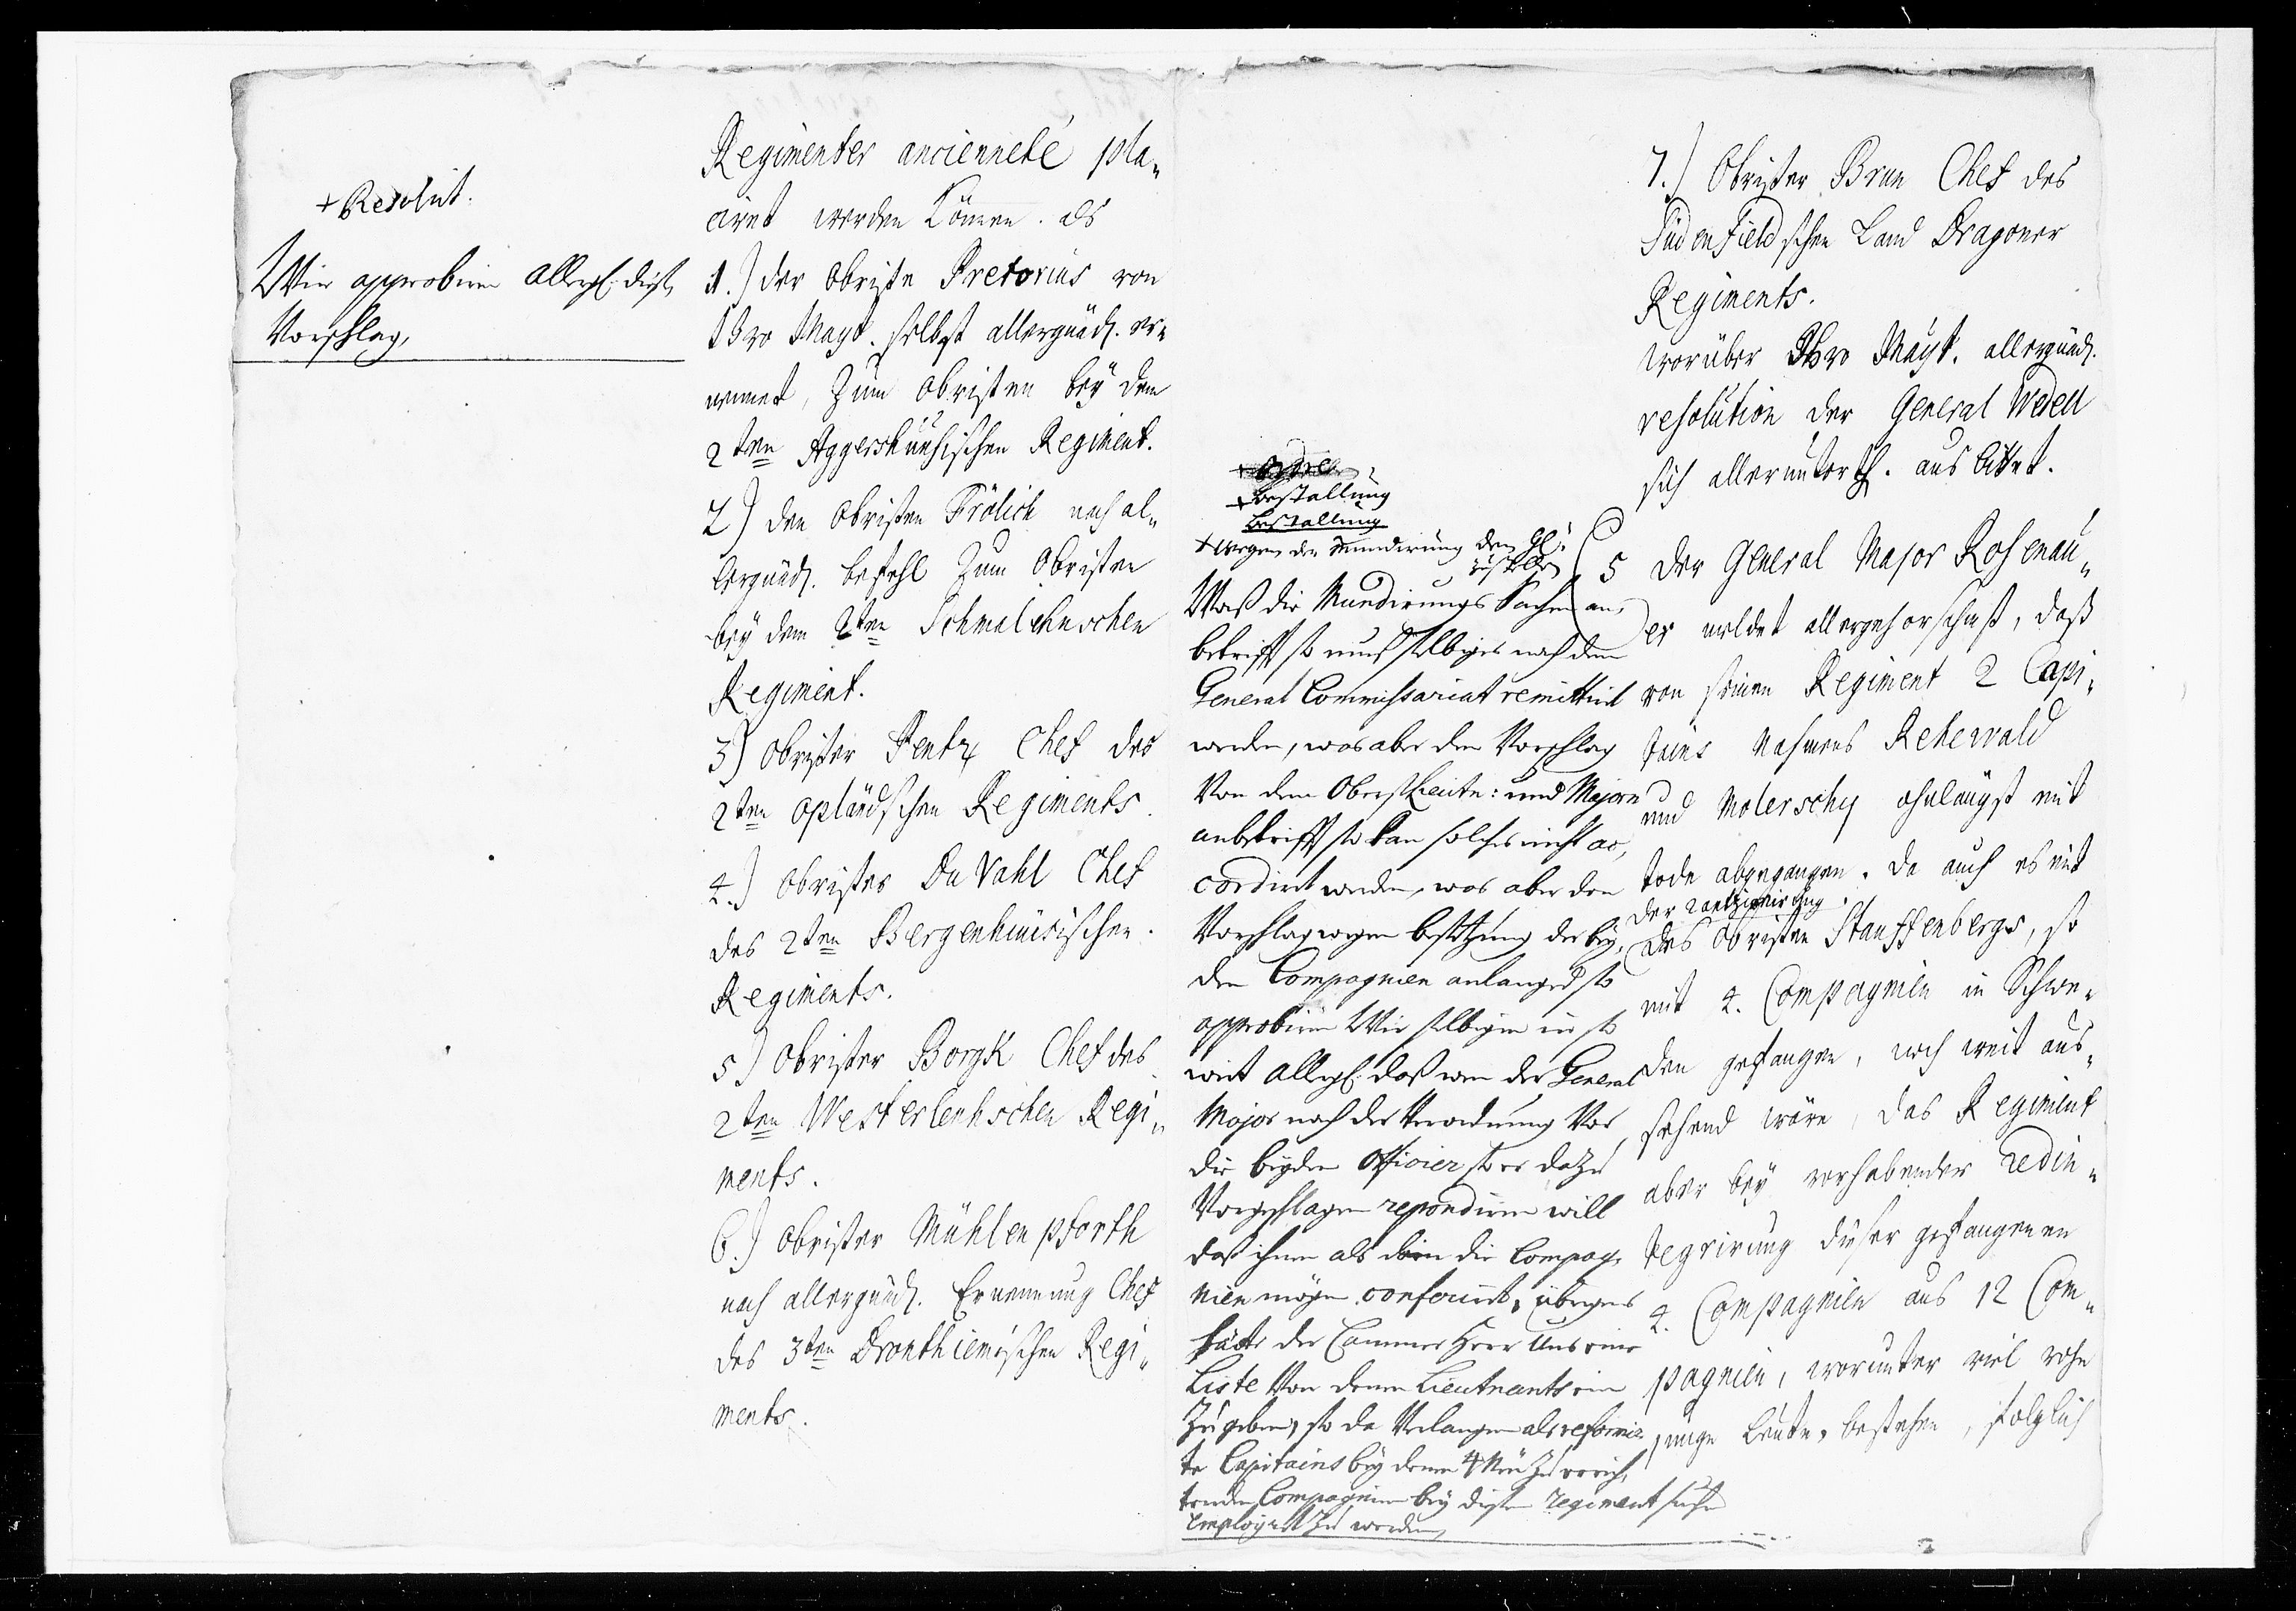 + Resolut.
Wir approbiren allergh: diesen
Vorschlag,
Regimenter ancienneté pla„
ciret werden können. als
1.) der Obriste Pretorius von
Ihro Mayt. selbst allergnäd. er„
nennet, zum Obristen beÿ dem
2ten Aggershuusischen Regiment.
2) den Obristen Frölich nach al„
lergnäd. befehl zum Obristen
beÿ dem 2ten Schmalehnschen
Regiment.
3) Obrister Pentz Chef des
2ten opländschen Regiments.
4.) Obrister Du Vahl Chef
des 2ten Bergenhuusischen
Regiments.
5) Obrister Borgk Chef des
2ten Westerlenhschen Regi„
ments.
6.) Obrister Mühlenpforth
nach allergnäd. Ernennung Chef
des 3ten Drontheimischen Regi„
ments.
+ bestallung
bestallung
+ wegen der mundirung dem Gl:
Waß die Mundirungs Sachen an„
betrifft so muß selbiges nach dem
General Commissariat remittirt
werden, was aber den Vorschlag
Von dem Obrist Lieutn: und Majorn
anbetrifft so kan solches nicht ac„
cordirt werden, was aber den
Vorschlag wegen besetzung der beÿ„
den Compagnien anlanget so
approbiren Wir selbigen in so
weit allergh. daß wen der General
Major nach der Verordnung Vor
die beÿden Officier so er dazu
Vorgeschlagen repondiren will
daß ihnen als dan die Compag„
nien mögen conferirt, übrigens
hätte der Cammer Herr Uns eine
Liste Von denen Lieutnants ein
zu geben, so da Verlangen als reformir„
te Capitains beÿ denen 4 Neu zu errich„
tenden Compagnien beÿ diesem regiment
employirt zu werden,
7.) Obrister Brun Chef des
Südenfieldschen Land Dragoner
Regiments.
worüber Ihro Mayt. allergnäd.
resolution der General Wedell
sich allerunterth. ausbittet.
5 Der General Major Rosenau„
er meldet allergehorsamst, daß
von seinen Regiment 2 Capi„
tains Nahmens Rehewald
und Molerschy ohnlängst mit
tode abgegangen. Da auch es mit
der rantzionirung
des Obristen Stauffenbergs, so
mit 4. Compagnien in Schwe„
den gefangen, noch weit aus„
sehend wäre, das Regiment
aber beÿ vorhabender redin„
tegrirung dieser gefangenen
4. Compagnien aus 12 Com„
pagnien, worunter viel rohe
junge Leute, bestehen, folglich